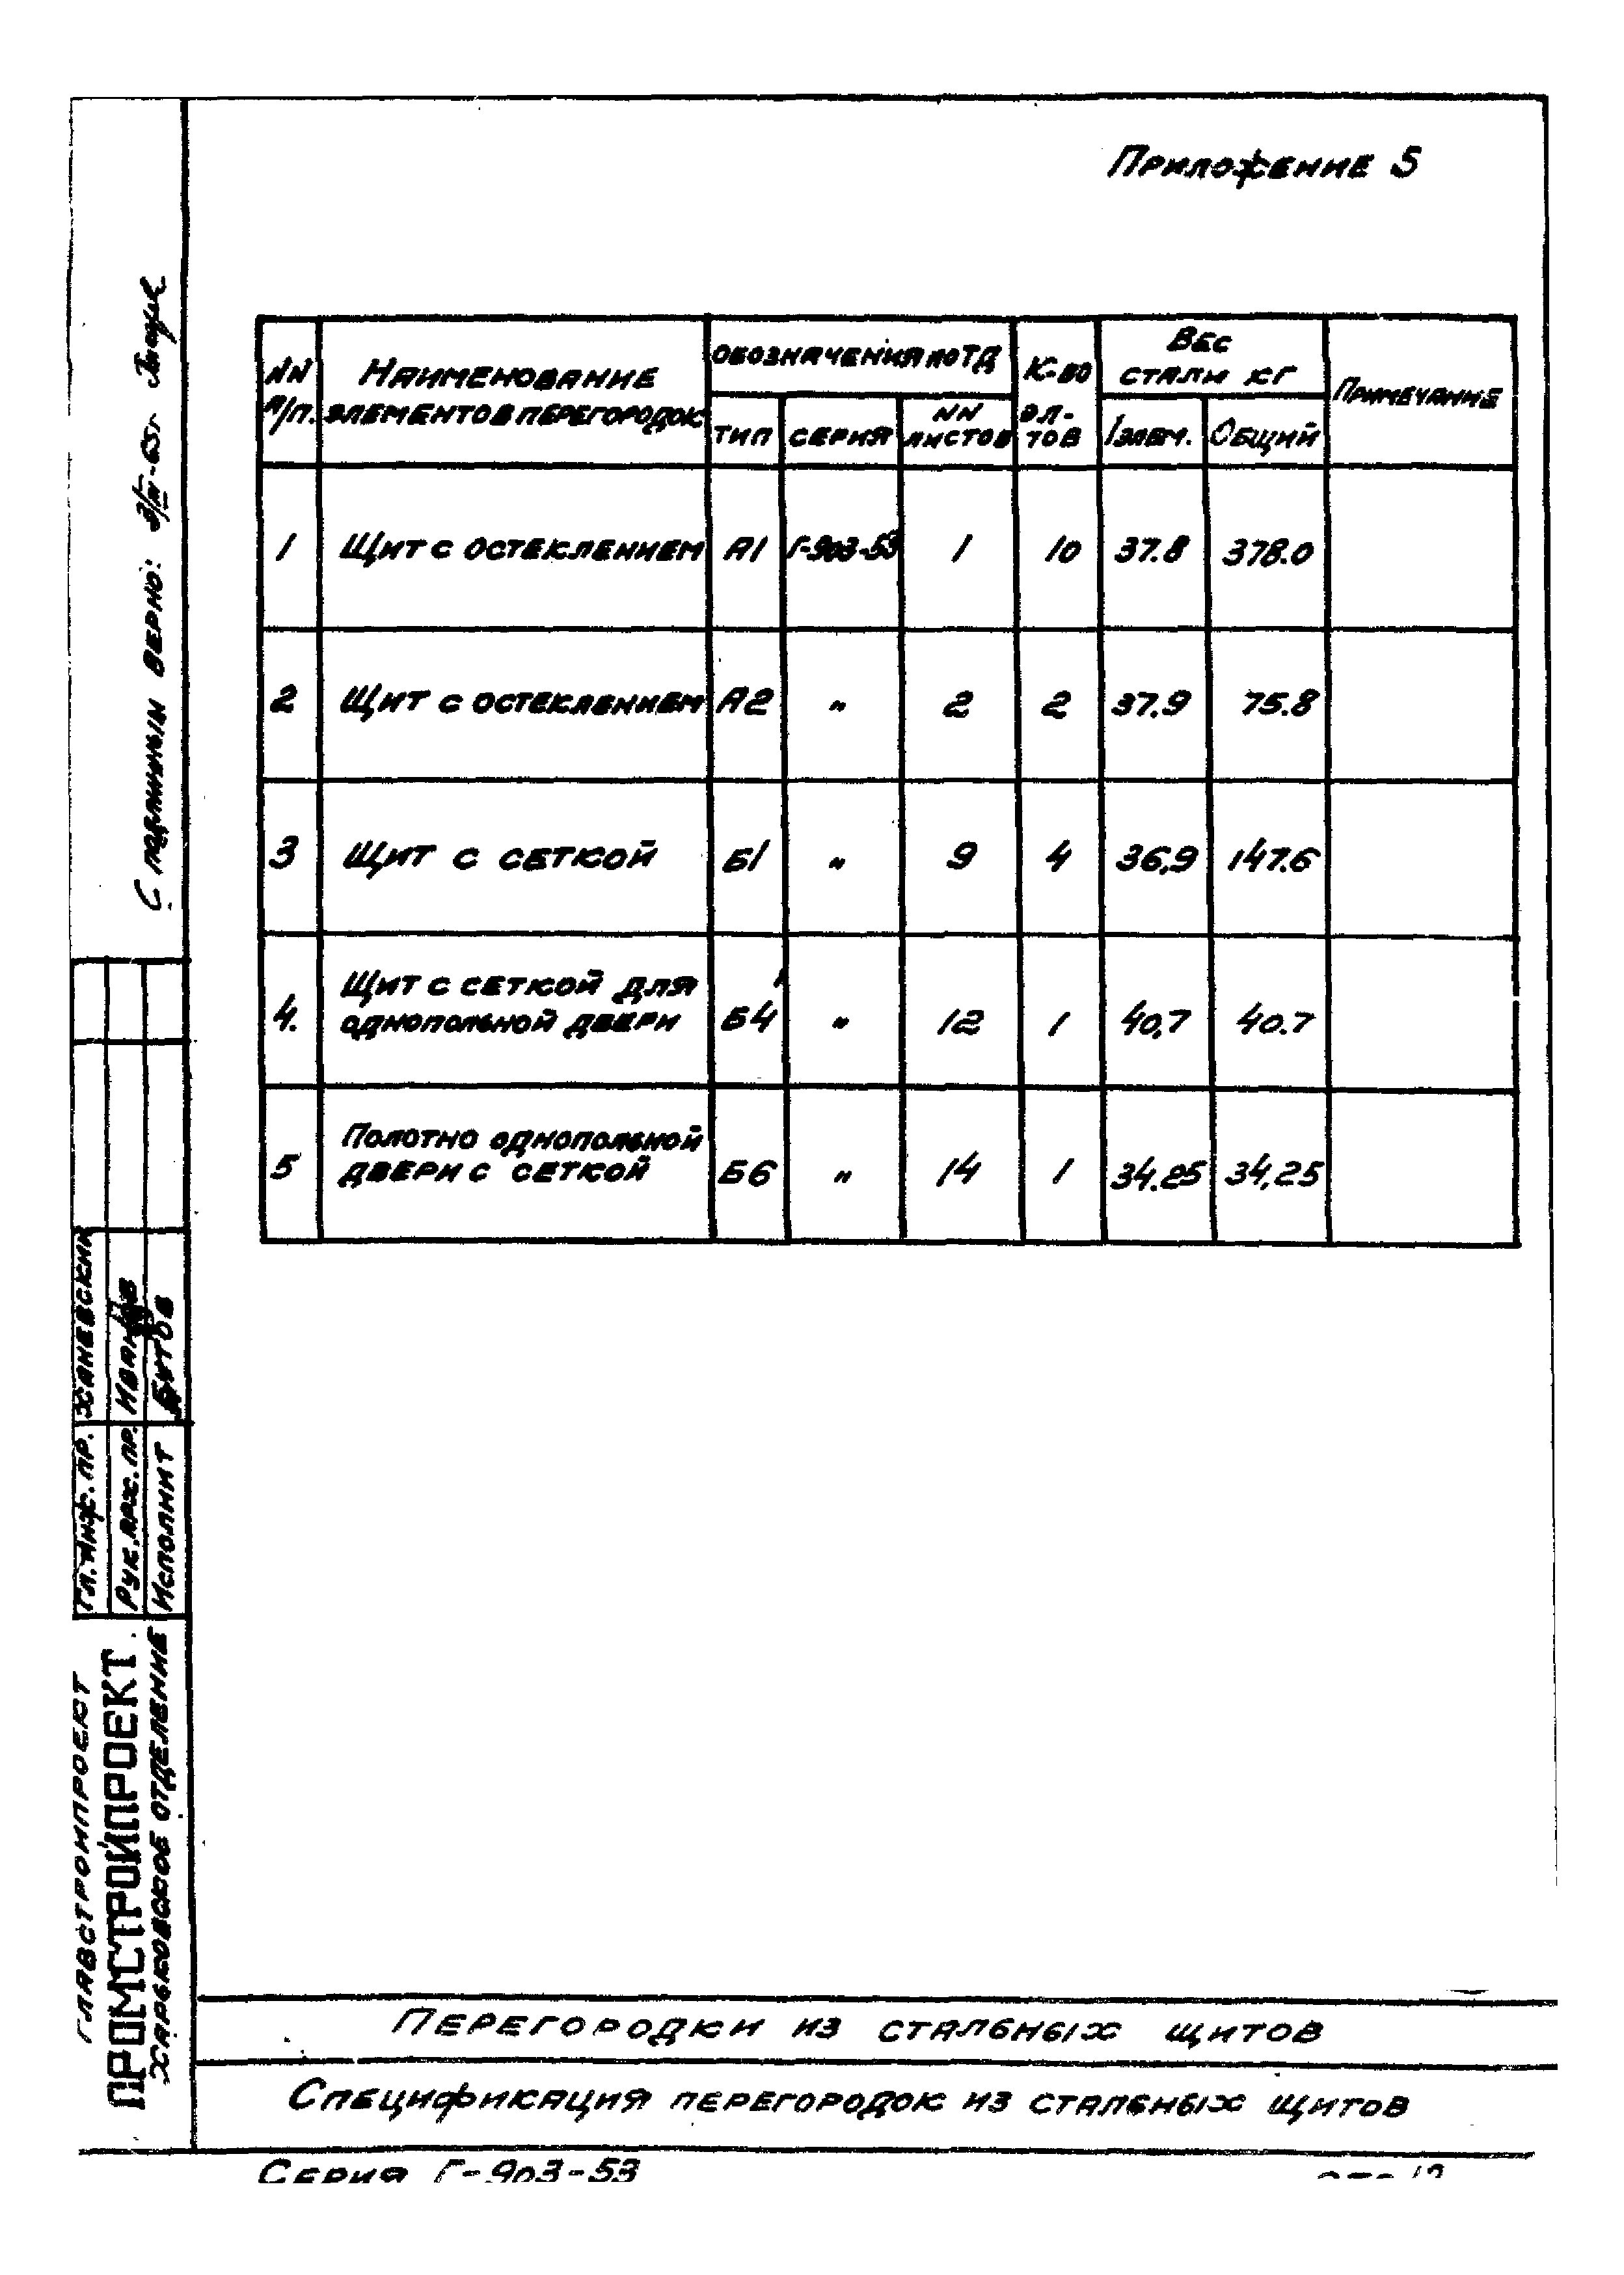 Приложение 5
NN п/п.
Наименование элементов перегородок
Обозначения по ТД
тип
серия
NN листов
К-во эл-тов
Вес стали кг
1 элем.
Общий
Примечание
1 Щит с остеклением А1 Г-903-53 1 10 37.8 378.0
2 Щит с остеклением А2 " 2 2 37.9 75.8
3 Щит с сеткой Б1 " 9 4 36,9 147.6
4. Щит с сеткой для однопольной двери Б4 " 12 1 40,7 40.7
5 Полотно однопольной двери с сеткой Б6 " 14 1 34.25 34,25
С подлинным верно:
Гл. инж. пр. Ханевский
Рук. арх. пр.
Исполнит Бутов
Главстройпроект
ПРОМСТРОЙПРОЕКТ
Харьковское отделение
Перегородки из стальных щитов
Спецификация перегородок из стальных щитов
Серия Г-903-53